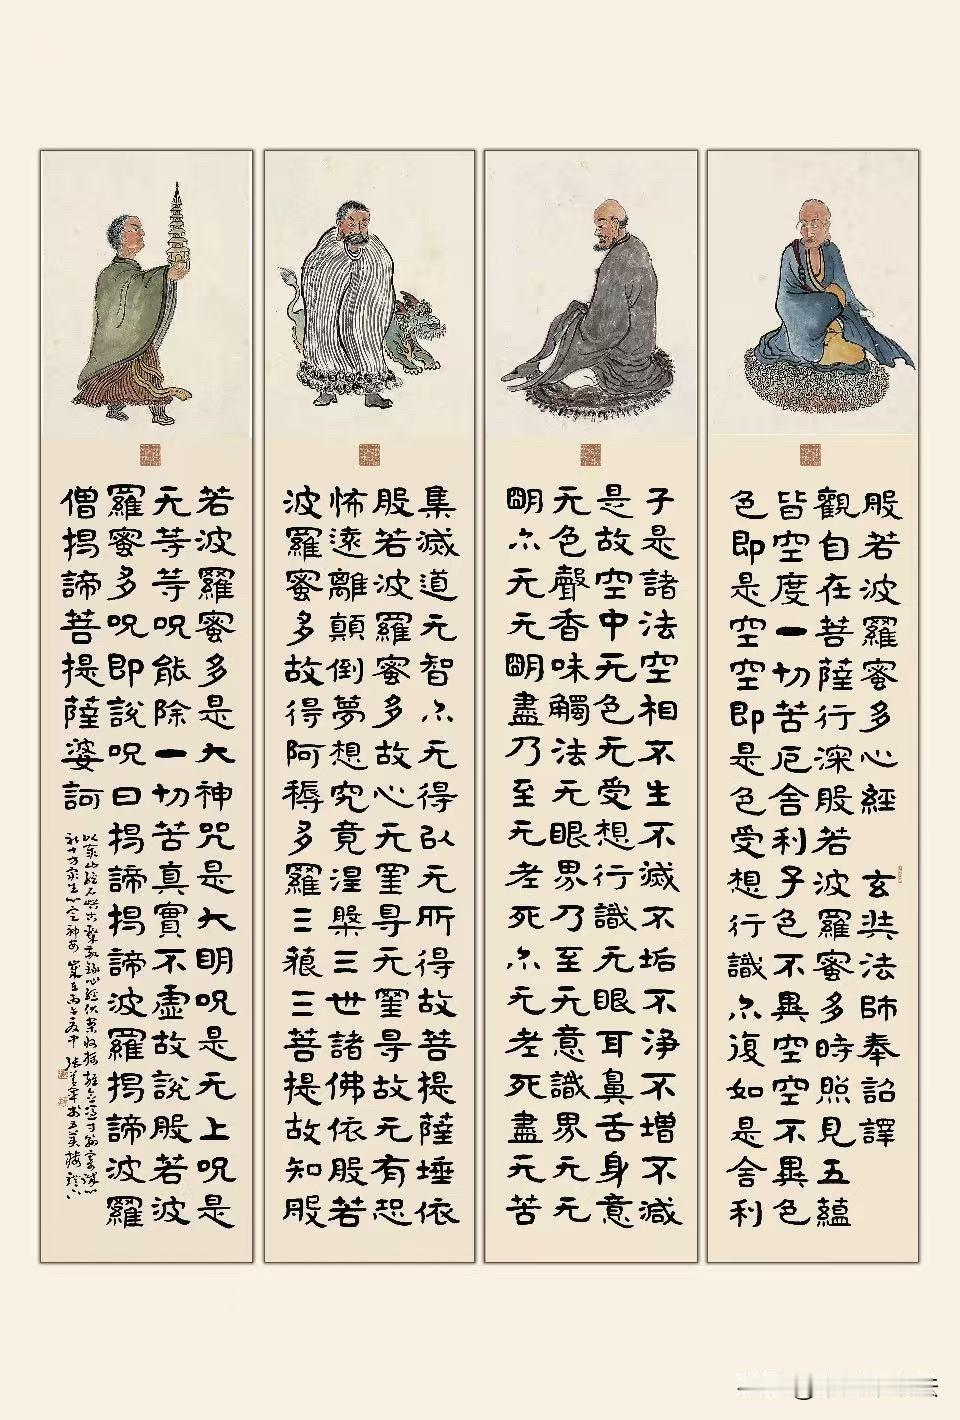 般若波羅蜜多心經 玄奘法師奉詔譯
觀自在菩薩行深般若波羅蜜多時照見五蘊
皆空度一切苦厄舍利子色不異空空不異色
色即是空空即是色受想行識亦復如是舍利
子是諸法空相不生不滅不垢不淨不增不減
是故空中无色无受想行識无眼耳鼻舌身意
无色聲香味觸法无眼界乃至无意識界无无
明亦无无明盡乃至无老死亦无老死盡无苦
集滅道无智亦无得以无所得故菩提薩埵依
般若波羅蜜多故心无罣㝵无罣㝵故无有恐
怖遠離顛倒夢想究竟涅槃三世諸佛依般若
波羅蜜多故得阿耨多羅三藐三菩提故知般
若波羅蜜多是大神咒是大明咒是无上咒是
无等等咒能除一切苦真實不虛故說般若波
羅蜜多咒即說咒曰揭諦揭諦波羅揭諦波羅
僧揭諦菩提薩婆訶